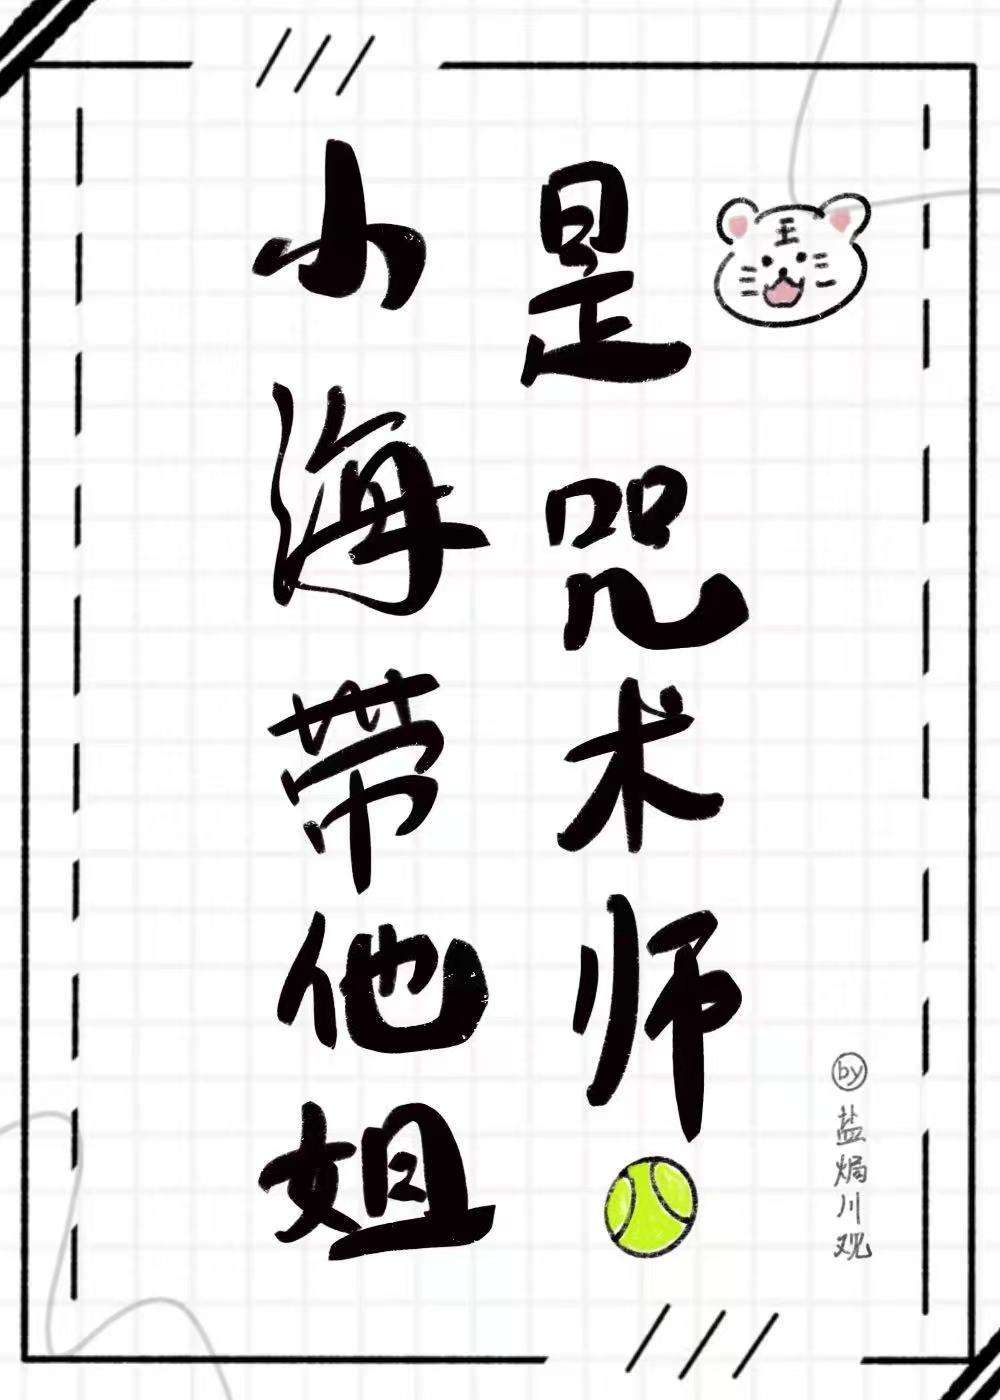 小海带他姐
是咒术师
王
by
盐焗川观